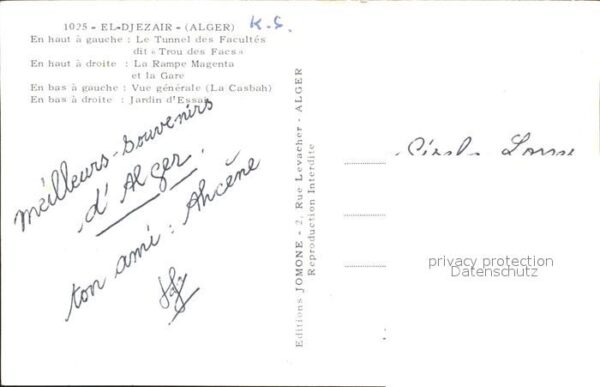 1025 - EL-DJEZAIR - (ALGER)
K.S.
En haut à gauche : Le Tunnel des Facultés
dit « Trou des Facs »
En haut à droite : La Rampe Magenta
et la Gare
En bas à gauche : Vue générale (La Casbah)
En bas à droite : Jardin d'Essai
Meilleurs souvenirs
d'Alger.
ton ami : Ahcène
Editions JOMONE - 2, Rue Levacher - ALGER
Reproduction Interdite
privacy protection
Datenschutz